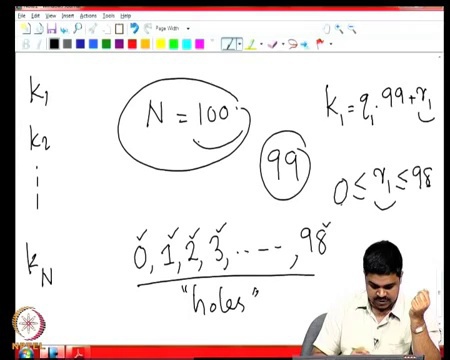 File Edit View Insert Actions Tools Help
Page Width
k₁
k₂
N = 100
99
k₁ = q₁ · 99 + r₁
0 ≤ r₁ ≤ 98
k_N
0, 1, 2, 3, ----, 98
"holes"